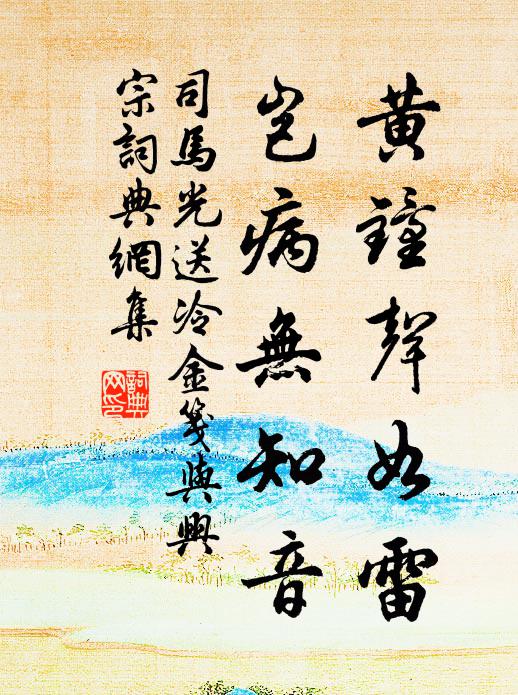 黃鐘聲如雷
豈病無知音
司馬光送冷金箋與興
宗詞典網集
詞典
网印